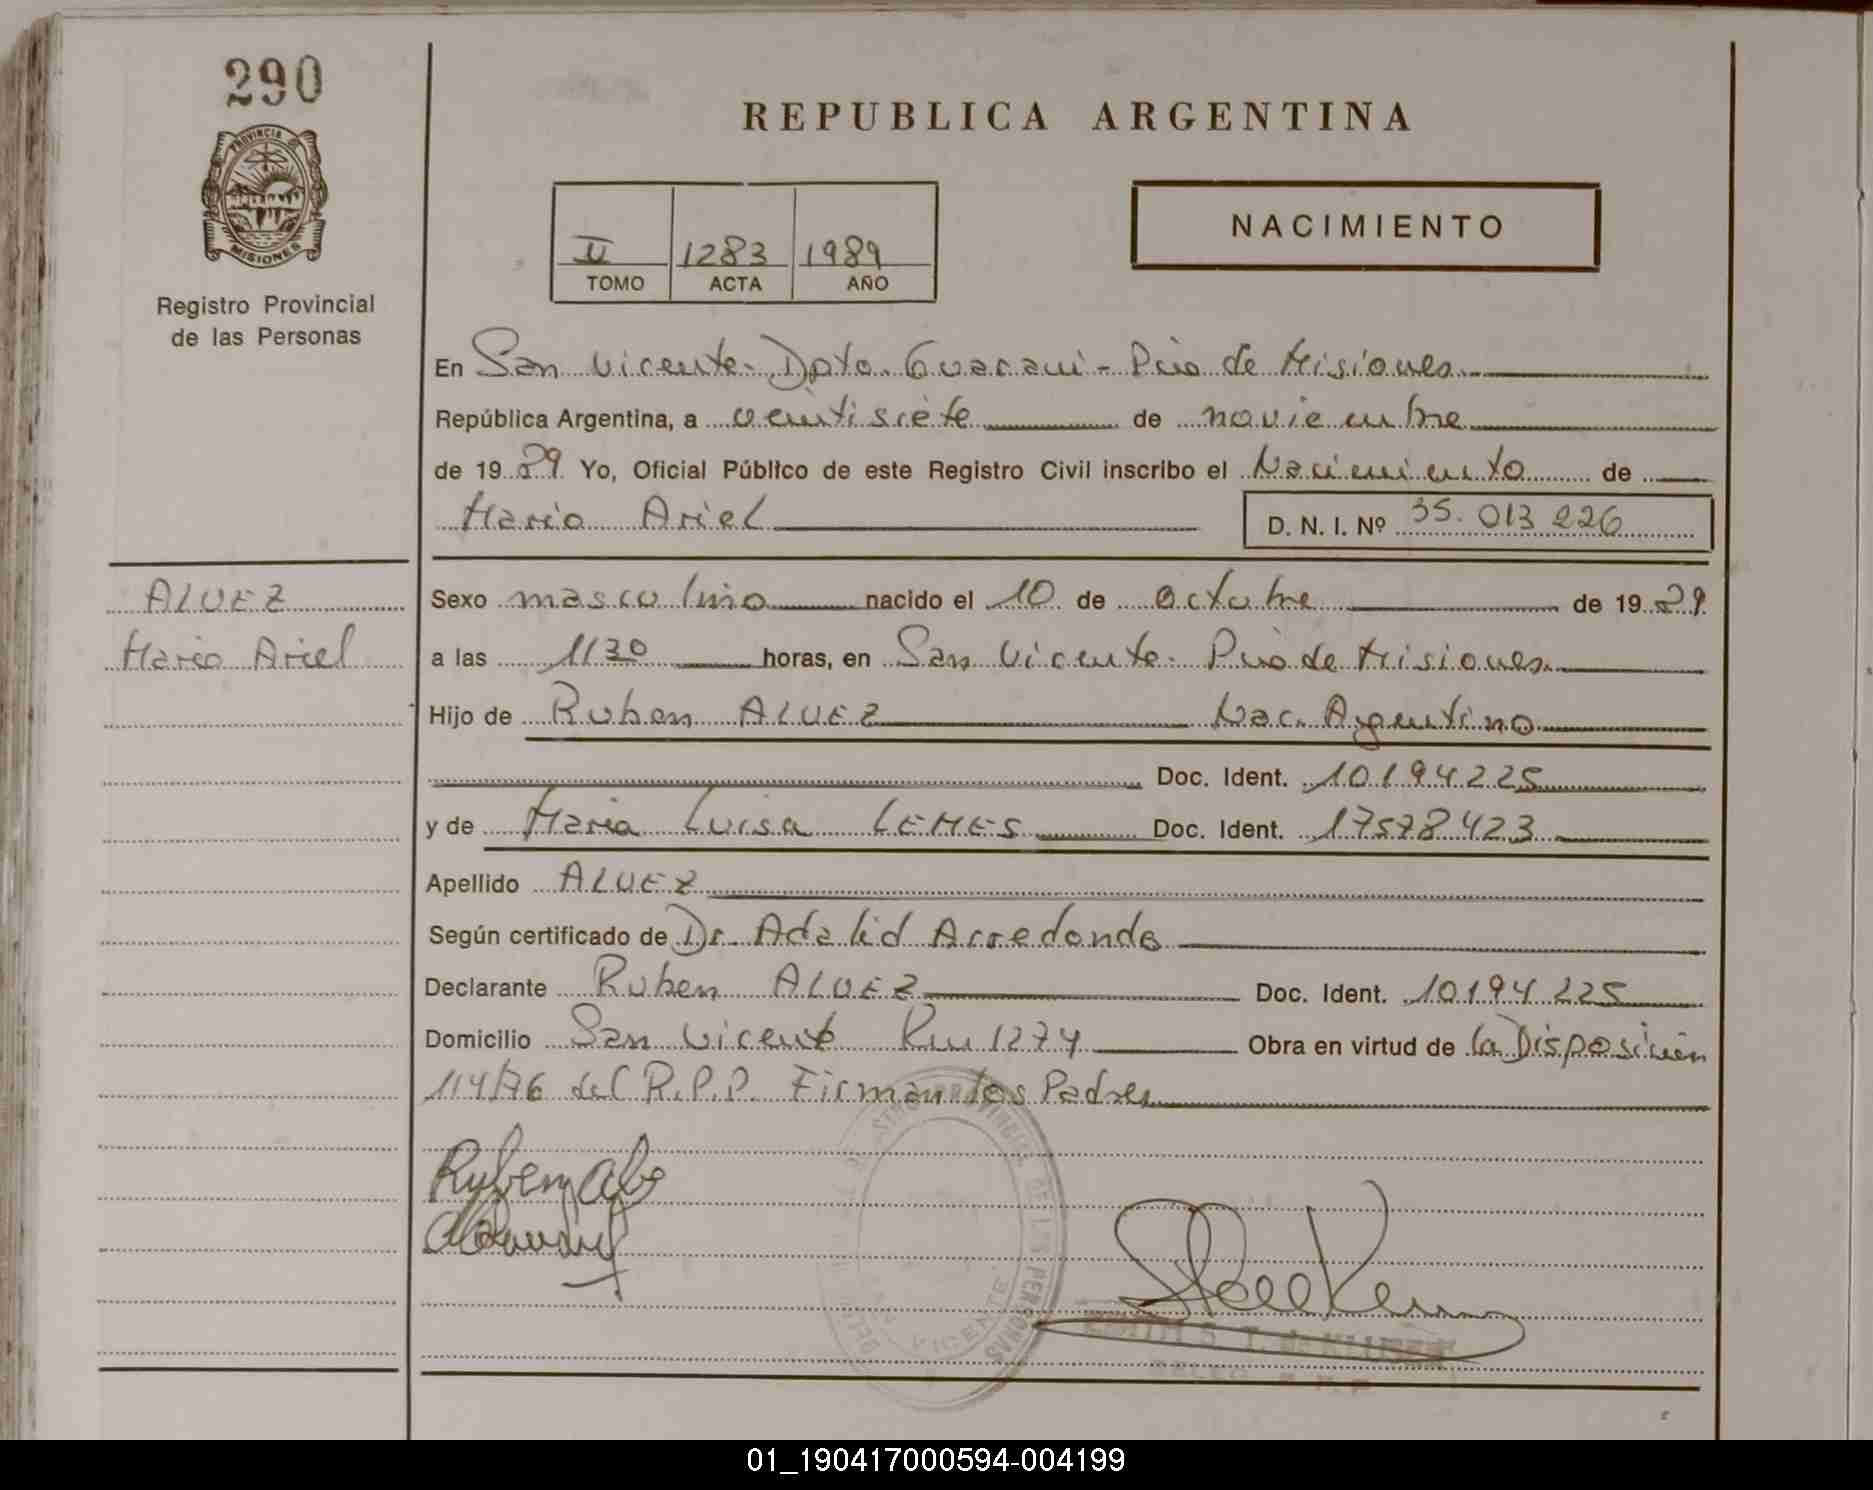 290
PROVINCIA
MISIONES
Registro Provincial
de las Personas
REPUBLICA ARGENTINA
NACIMIENTO
II 1283 1989
TOMO ACTA AÑO
En San Vicente - Dpto. Guarani - Pcia de Misiones
República Argentina, a veintisiete de noviembre
de 1989 Yo, Oficial Público de este Registro Civil inscribo el Nacimiento de
Mario Ariel D. N. I. Nº 35.013 226
ALVEZ
Mario Ariel
Sexo masculino nacido el 10 de octubre de 1989
a las 1130 horas, en San Vicente - Pcia de Misiones
Hijo de Ruben ALVEZ Nac. Argentino
Doc. Ident. 10194225
y de Maria Luisa LEMES Doc. Ident. 17578423
Apellido ALVEZ
Según certificado de Dr. Adalid Arredondo
Declarante Ruben ALVEZ Doc. Ident. 10194225
Domicilio San Vicente Km 1274 Obra en virtud de la Disposición
114/76 del R.P.P. Firman los Padres
PROVINCIAL DE LAS PERSONAS
VICENTE
01_190417000594-004199